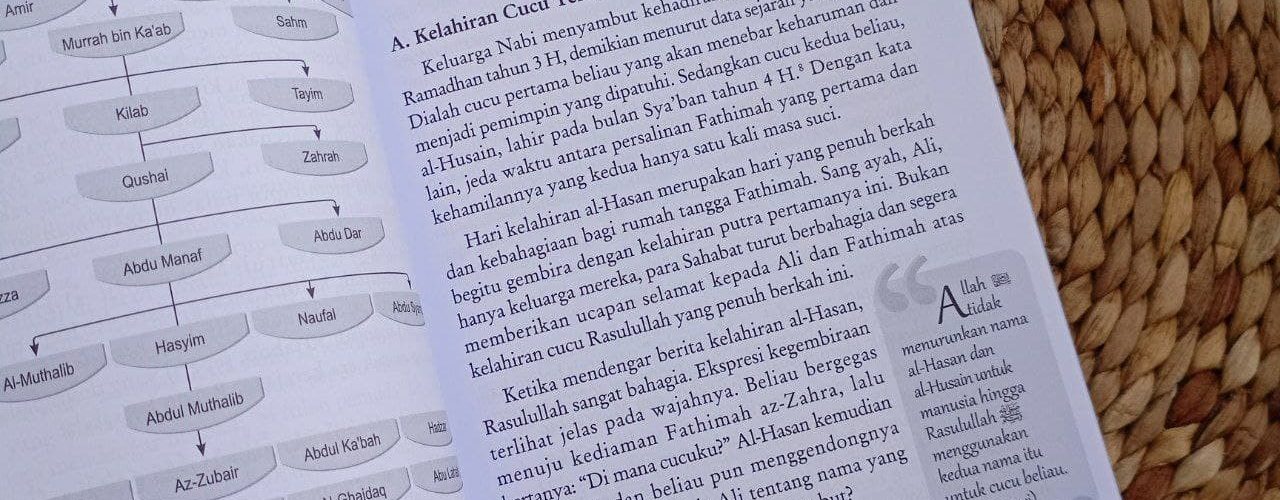 Amir
Murrah bin Ka'ab
Sahm
Kilab
Tayim
Qushai
Zahrah
Abdu Manaf
Abdu Dar
zza
Al-Muthalib
Hasyim
Naufal
Abdu
Abdul Muthalib
Az-Zubair
Abdul Ka'bah
Ghaidaq
A. Kelahiran Cucu
Keluarga Nabi menyambut
Ramadhan tahun 3 H, demikian menurut data sejarah
Dialah cucu pertama beliau yang akan menebar keharuman dan
menjadi pemimpin yang dipatuhi. Sedangkan cucu kedua beliau,
al-Husain, lahir pada bulan Sya'ban tahun 4 H.⁸ Dengan kata
lain, jeda waktu antara persalinan Fathimah yang pertama dan
kehamilannya yang kedua hanya satu kali masa suci.
Hari kelahiran al-Hasan merupakan hari yang penuh berkah
dan kebahagiaan bagi rumah tangga Fathimah. Sang ayah, Ali,
begitu gembira dengan kelahiran putra pertamanya ini. Bukan
hanya keluarga mereka, para Sahabat turut berbahagia dan segera
memberikan ucapan selamat kepada Ali dan Fathimah atas
kelahiran cucu Rasulullah yang penuh berkah ini.
Ketika mendengar berita kelahiran al-Hasan,
Rasulullah sangat bahagia. Ekspresi kegembiraan
terlihat jelas pada wajahnya. Beliau bergegas
menuju kediaman Fathimah az-Zahra, lalu
bertanya: “Di mana cucuku?” Al-Hasan kemudian
dan beliau pun menggendongnya
Ali tentang nama yang
“
Allah ﷻ
tidak
menurunkan nama
al-Hasan dan
al-Husain untuk
manusia hingga
Rasulullah ﷺ
menggunakan
kedua nama itu
untuk cucu beliau.